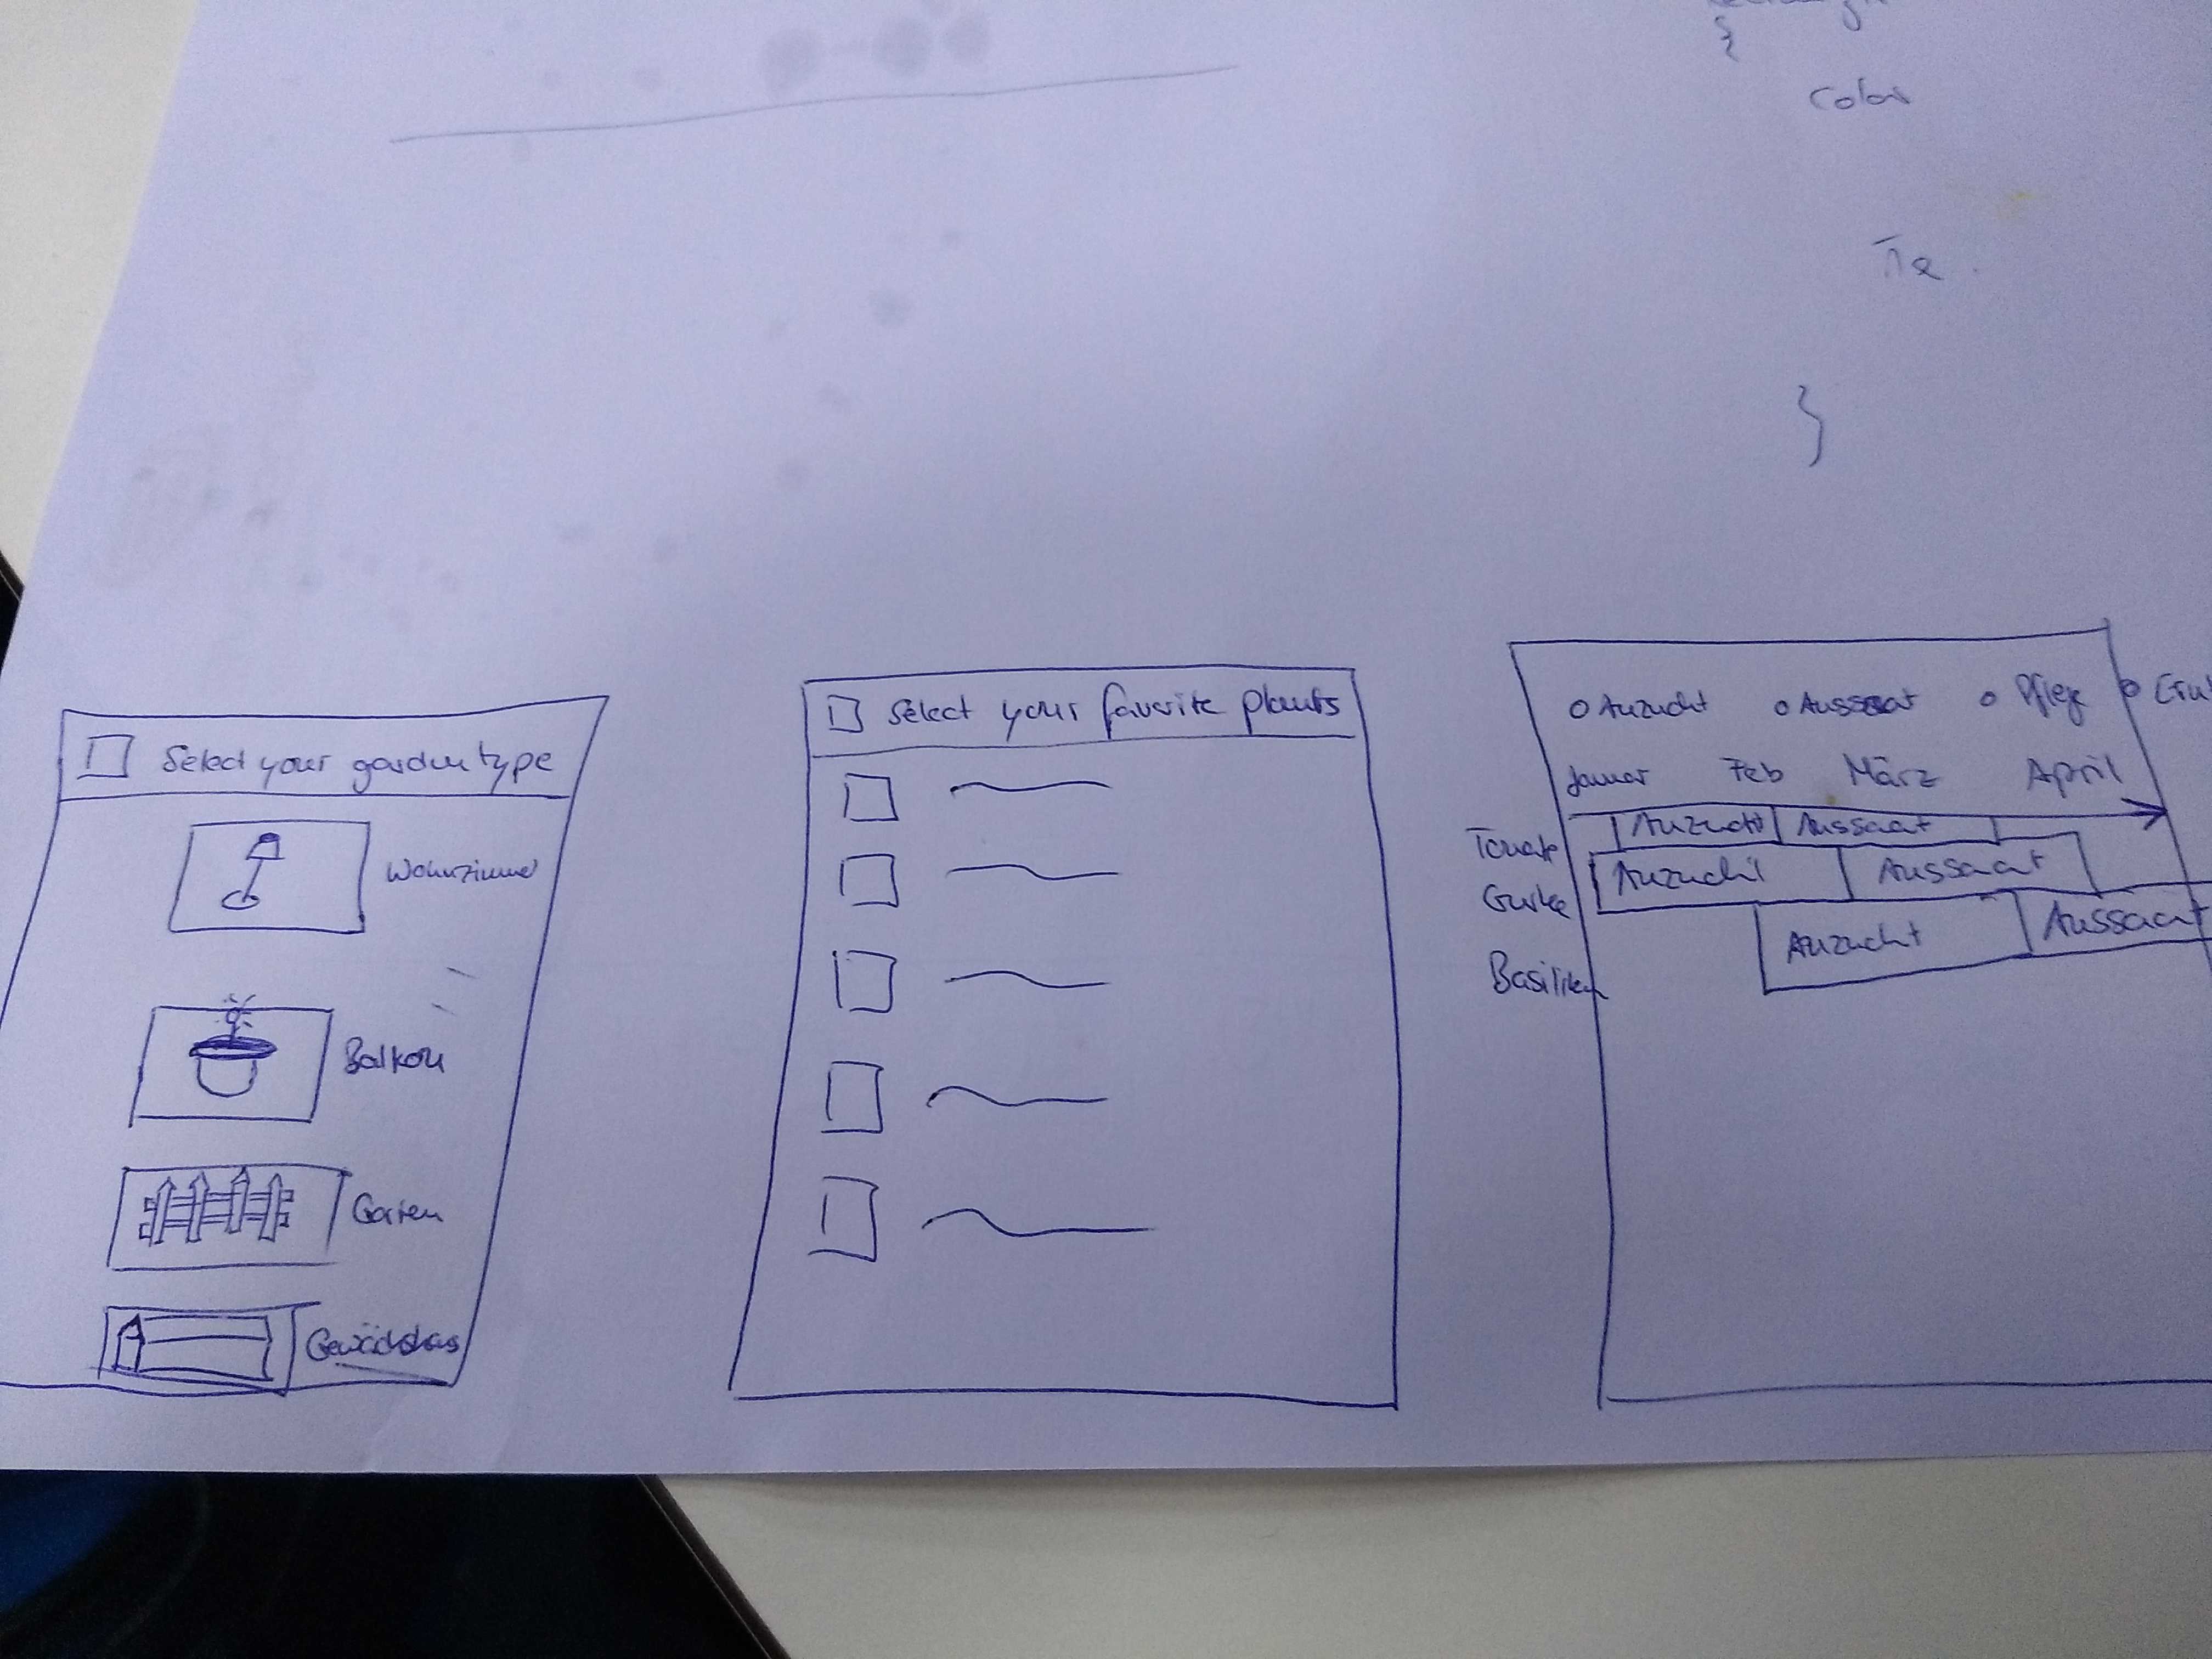 }
Color
}
Select your garden type
Wohnzimmer
Balkon
Garten
Gewächshaus
Select your favorite plants
Anzucht Aussaat Pflege
Januar Feb März April
Tomate Anzucht Aussaat
Gurke Anzucht Aussaat
Basilikum Anzucht Aussaat